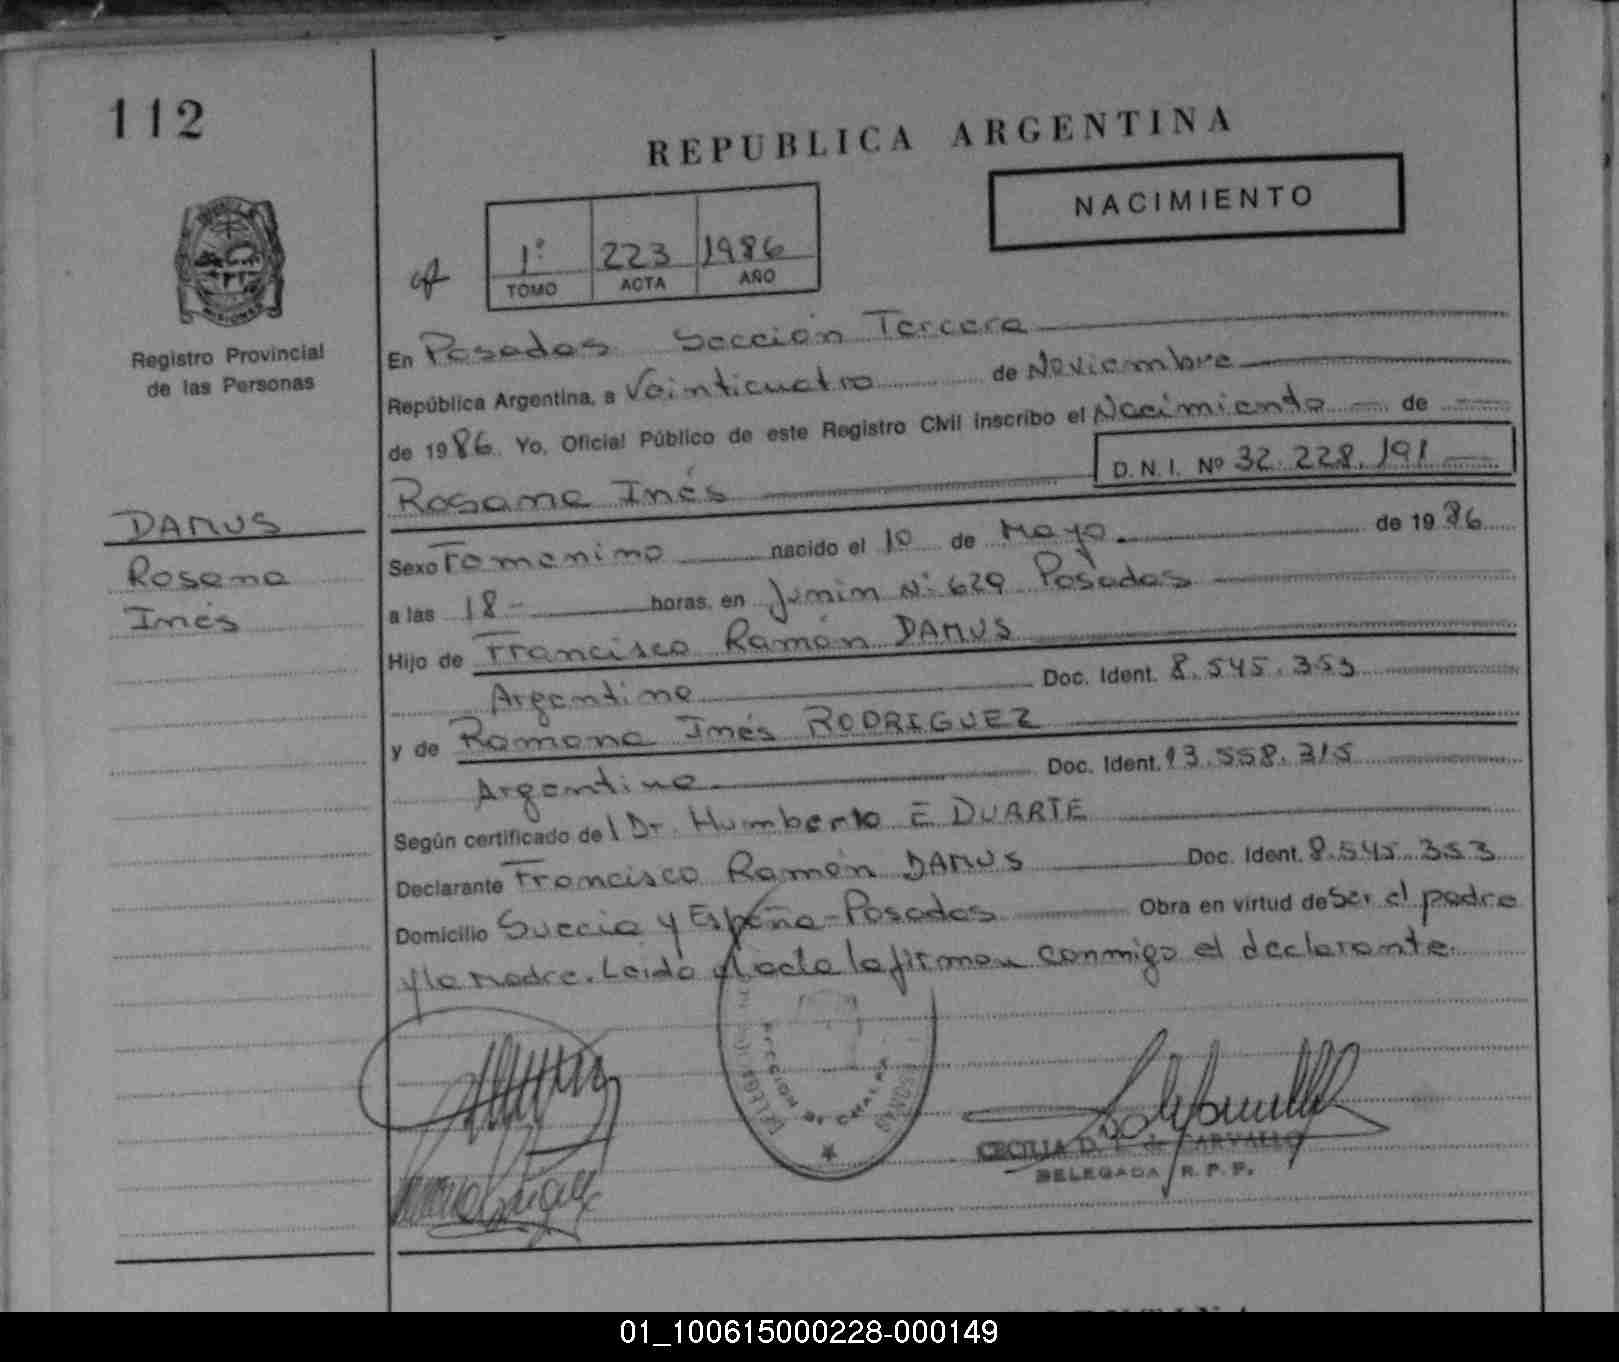 112
REPUBLICA ARGENTINA
NACIMIENTO
1º 223 1986
TOMO ACTA AÑO
MISIONES
Registro Provincial
de las Personas
En Posadas Sección Tercera
República Argentina, a Veinticuatro de Noviembre
de 1986. Yo, Oficial Público de este Registro Civil inscribo el Nacimiento de
D.N.I. Nº 32.228.191
Rosana Inés
DAMUS
Rosana
Inés
Sexo Femenino nacido el 10 de Mayo de 1986
a las 18 - horas, en Junín Nº 629 Posadas
Hijo de Francisco Ramón DAMUS
Argentino Doc. Ident. 8.545.353
y de Ramona Inés RODRIGUEZ
Argentina Doc. Ident. 13.558.315
Según certificado del Dr. Humberto E DUARTE
Declarante Francisco Ramón DAMUS Doc. Ident. 8.545.353
Domicilio Suecia y España - Posadas Obra en virtud de Ser el padre
y la Madre. Leída el acta la firman conmigo el declarante.
CECILIA de CARVALLO
DELEGADA R. P. P.
01_100615000228-000149